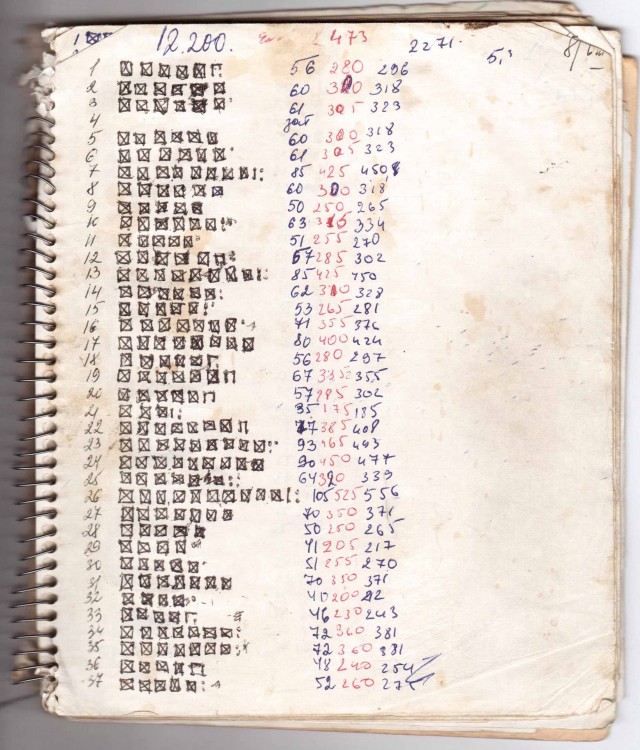 12.200. 2473 2271. 5,3
1 56 280 296
2 60 300 318
3 61 305 323
4
5 60 300 318
6 61 305 323
7 85 425 450
8 60 300 318
9 50 250 265
10 63 315 334
11 51 255 270
12 57 285 302
13 85 425 450
14 62 310 328
15 53 265 281
16 71 355 376
17 80 400 424
18 56 280 297
19 67 335 355
20 57 285 302
21 35 175 185
22 77 385 408
23 93 465 493
24 90 450 477
25 64 320 339
26 105 525 556
27 70 350 371
28 50 250 265
29 41 205 217
30 51 255 270
31 70 350 371
32 40 200
33 46 230 243
34 72 360 381
35 72 360 381
36 48 240 254
37 52 260 275